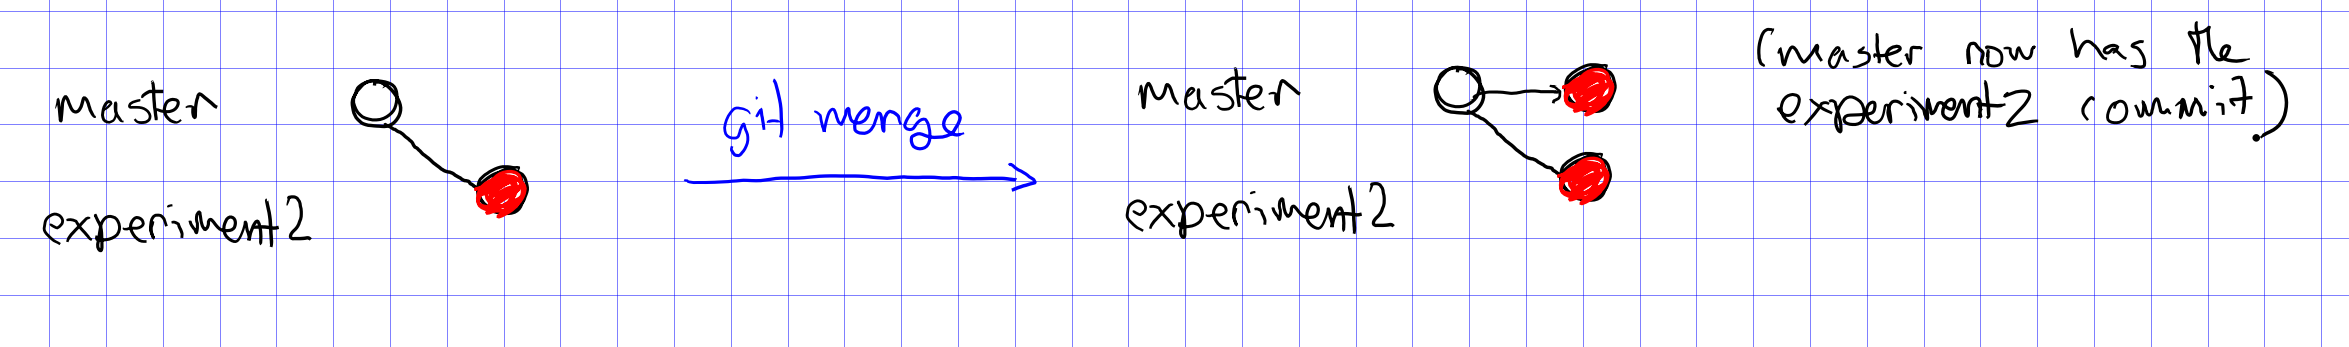 master
experiment2
git merge
master
experiment2
(master now has the
experiment2 commit.)